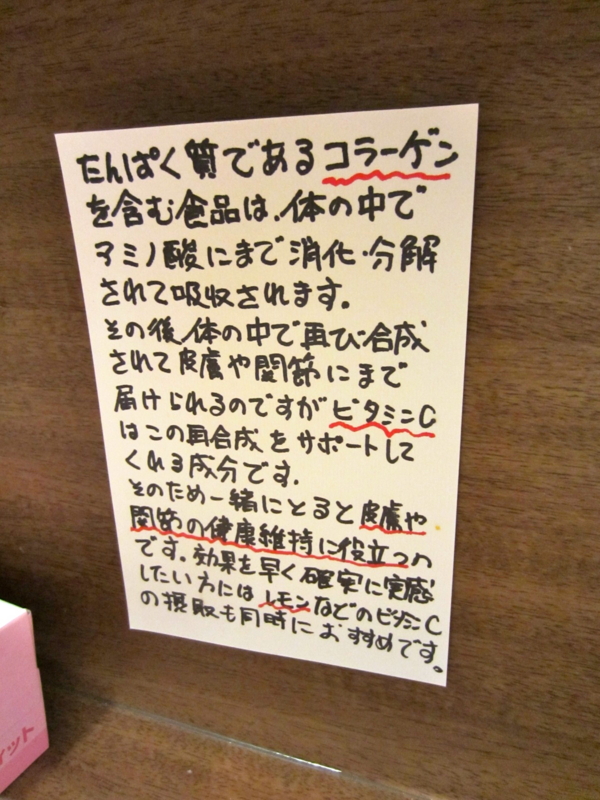 たんぱく質であるコラーゲン
を含む食品は、体の中で
アミノ酸にまで消化・分解
されて吸収されます。
その後、体の中で再び合成
されて皮膚や関節にまで
届けられるのですがビタミンC
はこの再合成をサポートして
くれる成分です。
そのため一緒にとると皮膚や
関節の健康維持に役立つの
です。効果を早く確実に実感
したい方にはレモンなどのビタミンC
の摂取も同時におすすめです。
ィット